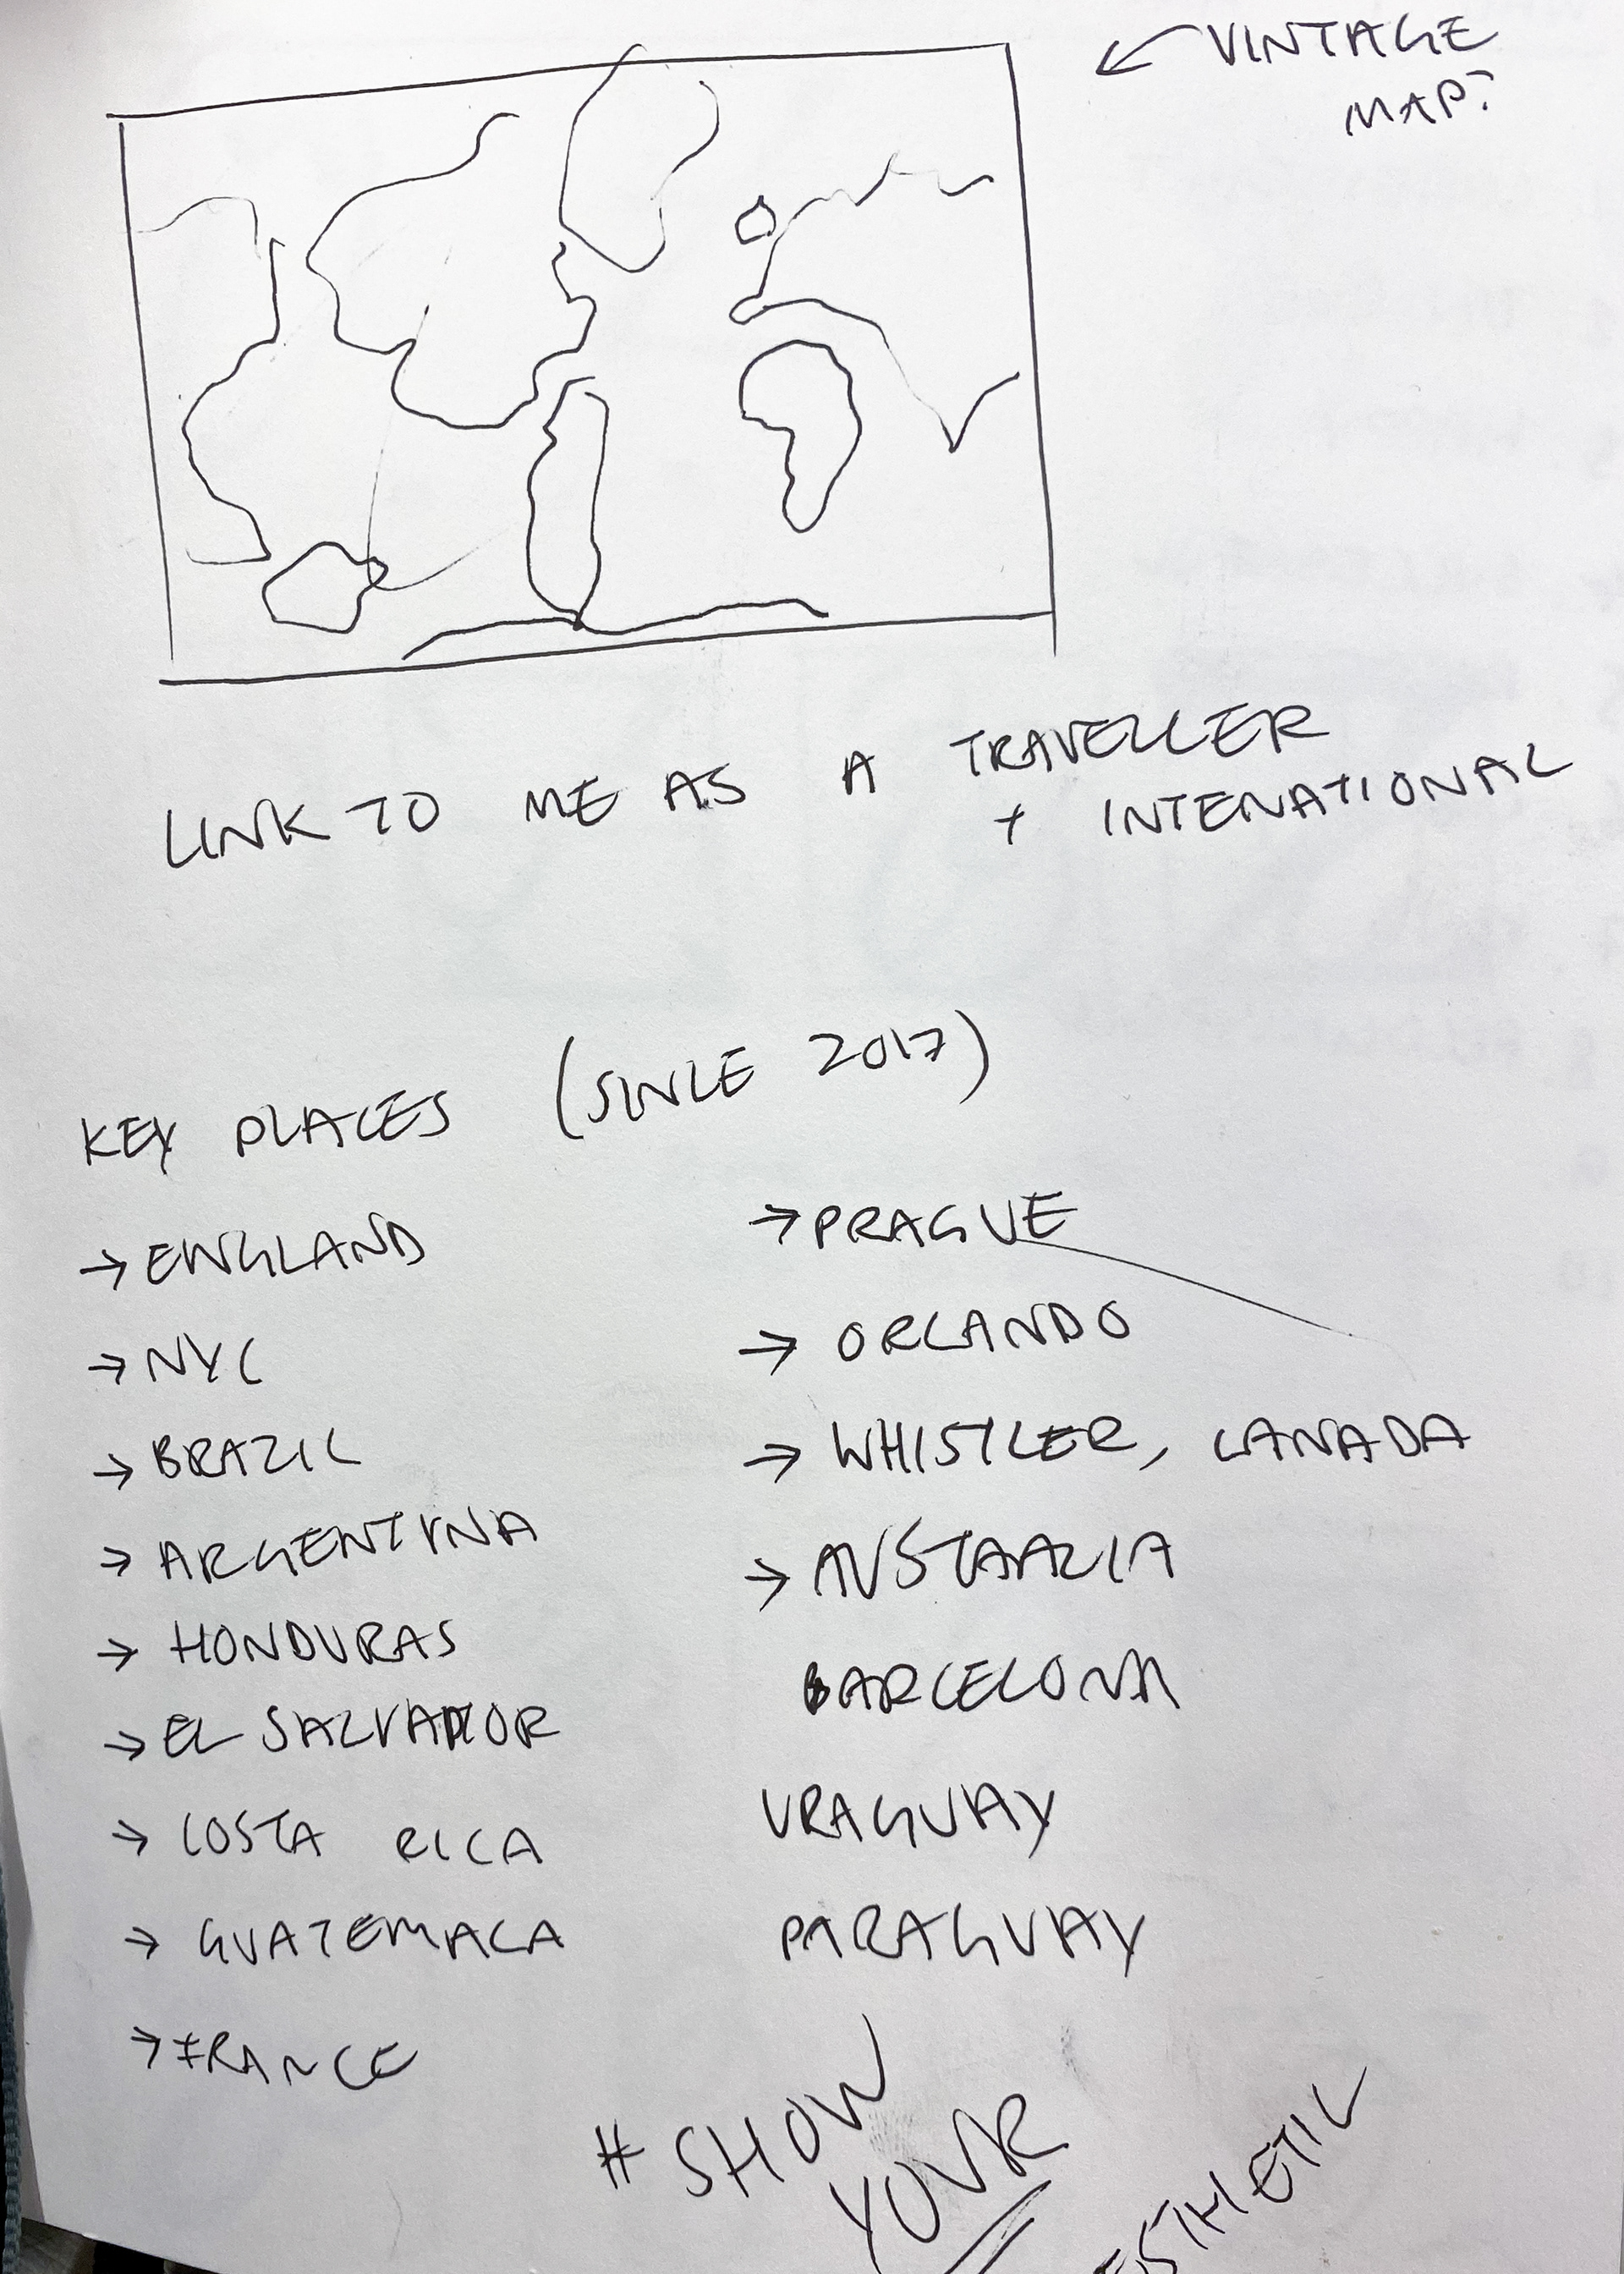 ← VINTAGE
MAP?
LINK TO ME AS A TRAVELLER
+ INTENATIONAL
KEY PLACES (SINCE 2017)
→ ENGLAND
→ NYC
→ BRAZIL
→ ARGENTYNA
→ HONDURAS
→ EL SALVADOR
→ COSTA RICA
→ GUATEMALA
→ FRANCE
→ PRAGUE
→ ORLANDO
→ WHISTLER, CANADA
→ AUSTRALIA
BARCELONA
URAGUAY
PARAGUAY
# SHOW
YOUR
ESTHETIC